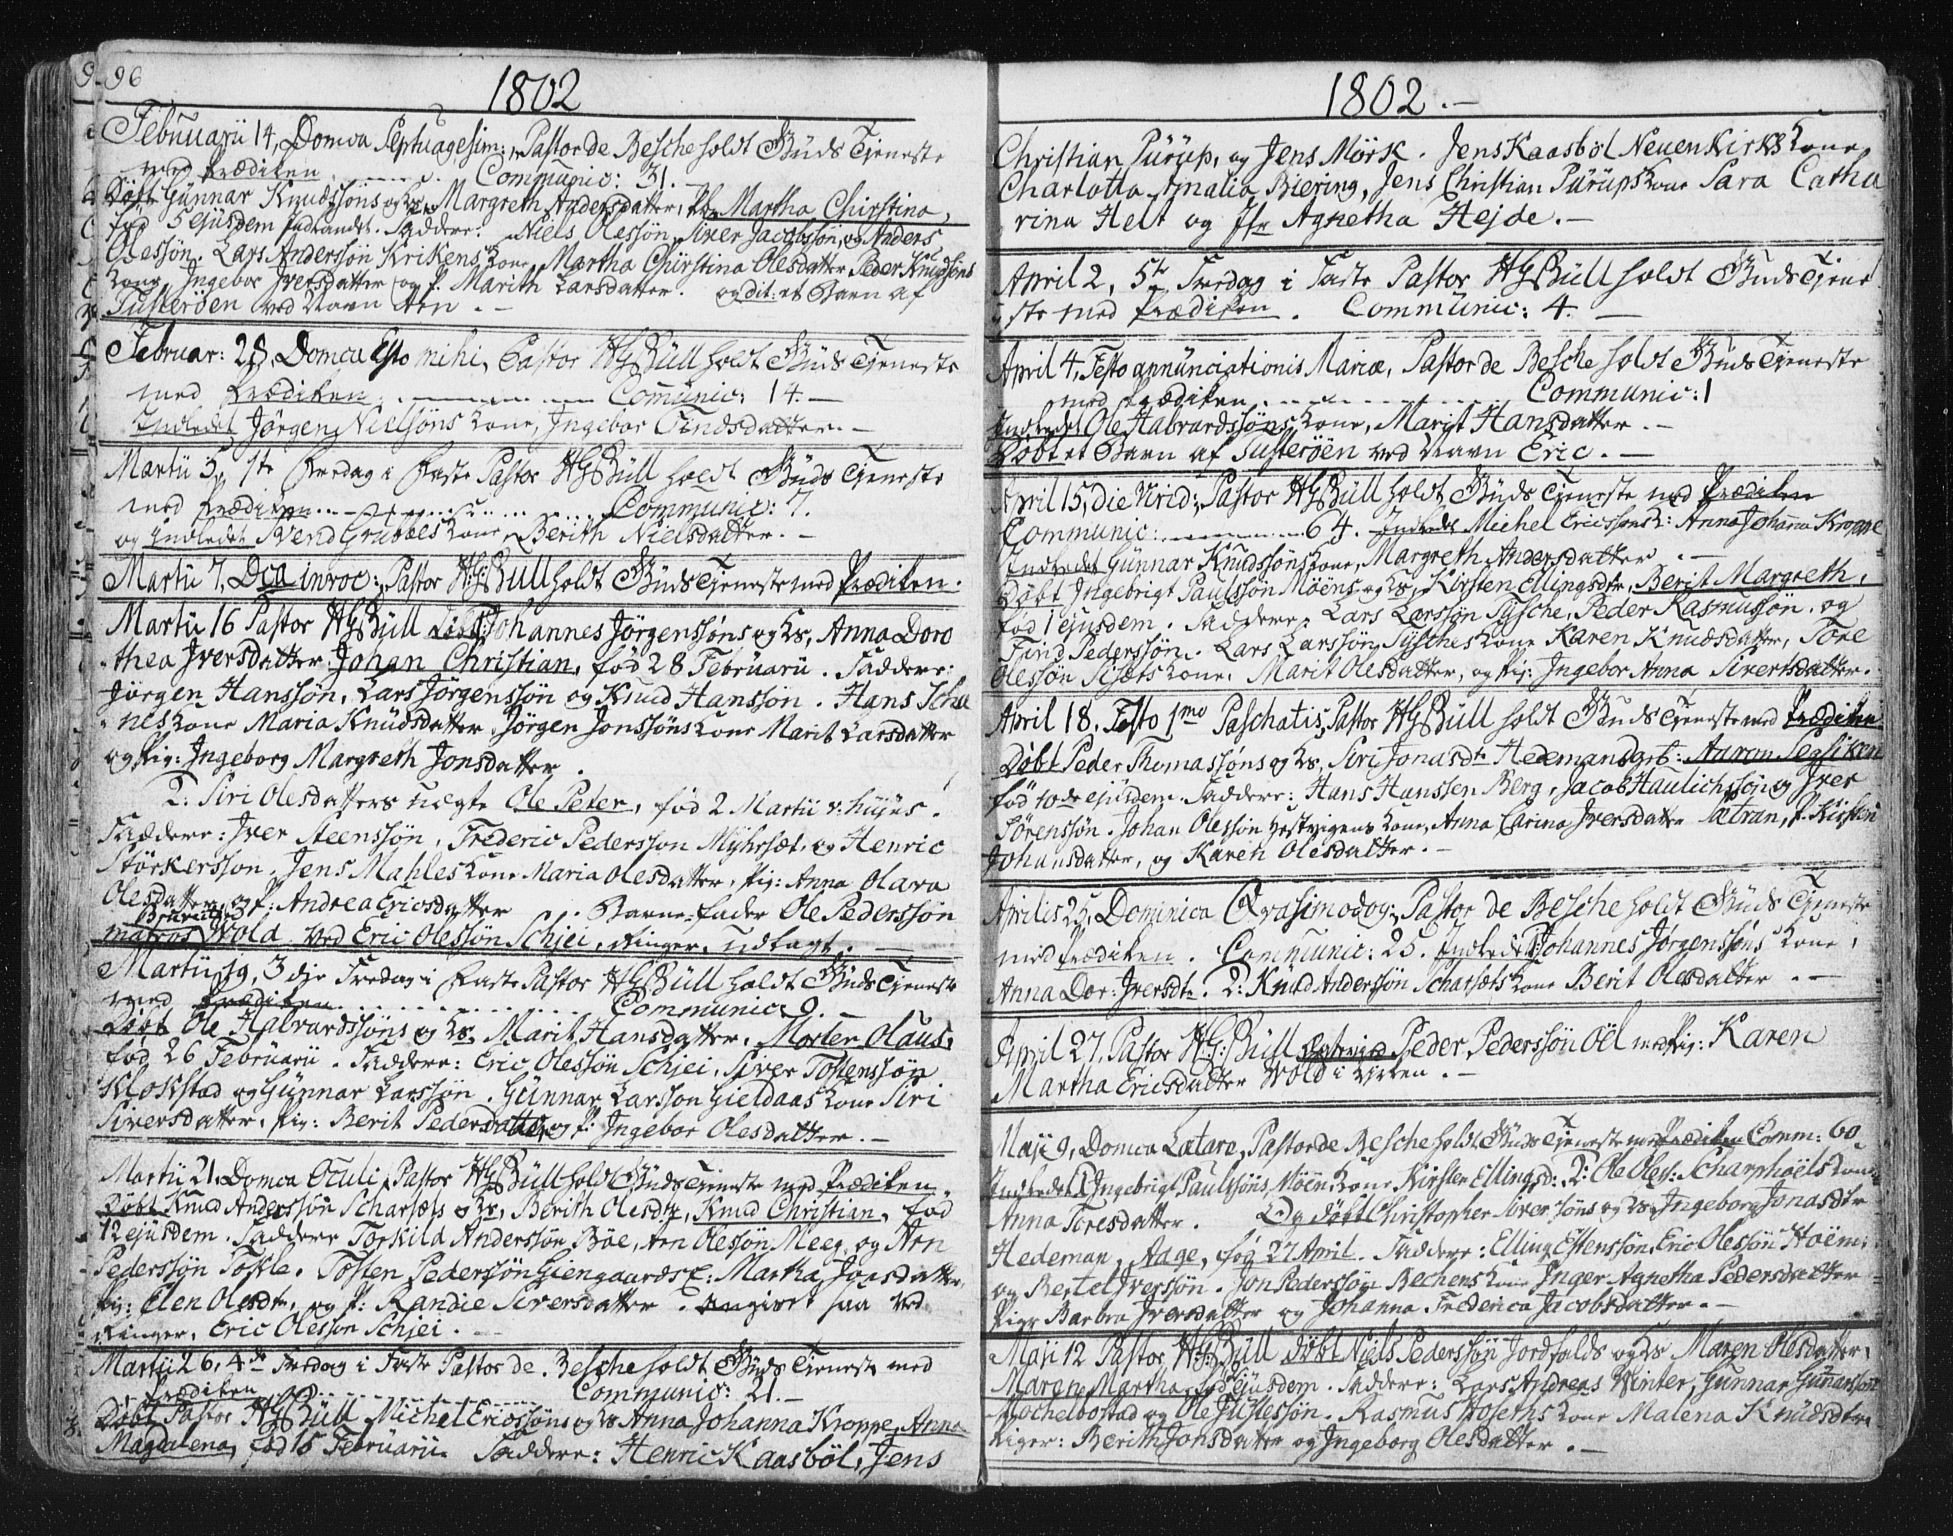 96
1802
Februarii 14, Domca Septuagesim:, Pastor de Besche holdt Guds Tjeneste
med Prædiken. Communic: 31.
Døbt Gunnar Knudssöns og Hs. Margreth Andersdatter, Pb. Martha Christina,
fød 5 ejusdem Faddere: Niels Olessön, Siver Jacobssön, og Anders
Olessön. Lars Anderssön Krikens Kone, Martha Christina Olesdatter, Peder Knudsöns
Kone Ingebor Iversdatter og P. Marith Larsdatter. og dit: et Barn af
Tusterøen ved Navn Aen. -
Februar: 28, Domca Esto mihi, Pastor HG Büll holdt Guds Tjeneste
med Prædiken. Comunic: 14. -
Indledet Jørgen Nielsöns Kone, Ingebor Findsdatter. -
Martii 5, 1te Fredag i Faste Pastor HG Büll holdt Guds Tjeneste
med Prædiken. Communic: 7.
og Indledet Svend Grubbes Kone, Berith Nielsdatter. -
Martii 7, Dca invoc:, Pastor H:G: Büll holdt Guds Tjeneste med Prædiken.
Martii 16 Pastor HG Büll døbt 1: Johannes Jörgenssöns og Hs. Anna Doro
thea Iversdatter Johan Christian, fød 28 Februarii. Faddere:
Jörgen Hanssön, Lars Jörgenssön og Knud Hanssön. Hans Scha
nes Kone Maria Knudsdatter, Jörgen Jonssöns Kone Marit Larsdatter
og Pig: Ingeborg Margreth Jonsdatter.
2: Siri Olesdatters uægte Ole Peter, fød 2 Martii
Faddere: Iver Steenssön, Frederic Pederssön Myhrsæt, og Henric
Störkerssön. Jens Mahles Kone Maria Olesdatter, Pig: Anna Olava
Olesdatter, og P: Andrea Ericsdatter. Barne-fader Ole Pederssön
matros Wold ved Eric Olessön Schjei, Ringer, udlagt. -
Martii 19, 3die Fredag i Faste Pastor HG Büll holdt Guds Tjeneste
med Prædiken. Communic. 9. -
Døbt Ole Halvardssöns og Hs. Marit Hansdatter, Morten Olaus,
fød 26 Februarii. Faddere: Eric Olessön Schjei, Siver Tostenssön
Klokstad og Gunnar Larssön. Gunnar Larssön Gieldaas Kone Siri
Siversdatter, Pig: Berit Pedersdatter, og P: Ingebor Olesdatter. -
Martii 21, Domca Oculi, Pastor HG Büll holdt Guds Tjeneste med Prædiken.
Døbt Knud Anderssön Scharsæts og Hs, Berith Olesdtr, Knud Christian, fød
12 ejusdem. Faddere Torkild Anderssön Böe, Aen Olessön Meeg, og Aen
Pederssön Tostle. Tosten Pederssön Giengaards K: Martha Joasdatter,
Pig: Elen Olesdtr, og P: Randie Siversdatter. angivet saa ved
Ringer, Eric Olessön Schjei. -
Martii 26, 4de Fredag i Faste Pastor de Besche holdt Guds Tjeneste med
Prædiken Communic: 21. -
Døbt Pastor HG Büll Michel Ericssöns og Hs Anna Johanna Kroppe, Anna
Magdalena, fød 16 Februarii. Faddere: Henric Kaasböl, Jens
1802. -
Christian Pürup, og Jens Mörk. Jens Kaasböl Neuenkirks Kone
Charlotta Amalia Biering, Jens Christian Pürups Kone Sara Catha
rina Helt og Jfr Agnetha Hejde. -
April 2, 5te Fredag i Faste Pastor HG Büll holdt Guds Tjene
ste med Prædiken. Communic: 4. -
April 4, Festo annunciationis Mariæ, Pastor de Besche holdt Guds Tjeneste
med Prædiken. Communic: 1
Indledet Ole Halvardssöns Kone, Marit Hansdatter. -
Døbt et Barn af Tusterøen ved Navn Eric. -
April 15, die Virid:, Pastor HG Büll holdt Guds Tjeneste med Prædiken
Communic: 64. Indledt Michel Ericssöns K: Anna Johanna Kroppe
Indledet Gunnar Knudssöns Kone, Margreth Andersdatter. -
Døbt Ingebrigt Paulssön Möens og Hs. Kirsten Ellingsdtr, Berit Margreth,
fød 1 ejusdem. Faddere: Lars Larssön Sysche, Peder Rasmussön, og
Find Pederssön. Lars Larssön Sysches Kone Karen Knudsdatter, Tore
Olessön Sisæts Kone, Marit Olesdatter, og Pig: Ingebor Anna Sivertsdatter.
April 18. Festo 1mo Paschatis, Pastor HG Büll holdt Guds Tjeneste med Prædiken
Døbt Peder Thomassöns og Hs. Siri Jonasdtr Hedemans Aaron
fød 10de ejusdem. Faddere: Hans Hanssen Berg, Jacob Haulichssön og Iver
Sörenssön. Johan Olessön Kone, Anna Carina Iversdatter P. Kirsten
Johansdatter, og Karen Olesdatter. -
Aprilis 25, Dominica Qvasimodog:, Pastor de Besche holdt Guds Tjeneste
med Prædiken. Communic: 25. Indledet 1: Johannes Jørgenssöns Kone,
Anna Dor: Iversdtr. 2: Knud Anderssön Scharsæts Kone Berit Olesdatter. -
April 27. Pastor H:G: Büll Peder Pederssön Öel med Pig: Karen
Martha Ericsdatter Wold i Kirken. -
Maji 9, Domca Lætare, Pastor de Besche holdt Guds Tjeneste med Prædiken Comm: 60.
Indledet 1: Ingebrigt Paulssöns Möen Kone, Kirsten Ellingsd: 2: Ole Oles: Scharphöels Kone
Anna Toresdatter. Og døbt Christopher Siverssöns og Hs Ingeborg Jonasdtr
Hedeman, Aage, fød 27 April. Faddere: Elling Estenssön, Eric Olessön Hoëm,
og Bertel Iverssön. Jon Pederssön Bechens Kone Inger Agnetha Pedersdatter
Piger Barbra Iversdatter og Johanna Frederica Jacobsdatter. -
Maji 12 Pastor H:G: Büll döbt Niels Pederssön Jordfalds og Hs Maren Olesdatter,
Maren Martha, fød ejusdem. Faddere: Lars Andreas Winter, Gunnar Gunnarssön
Mochelbostad og Ole Justessön. Rasmus Hoseths Kone Malena Knudsdtr,
Piger: Berith Jonsdatter og Ingeborg Olesdatter. -